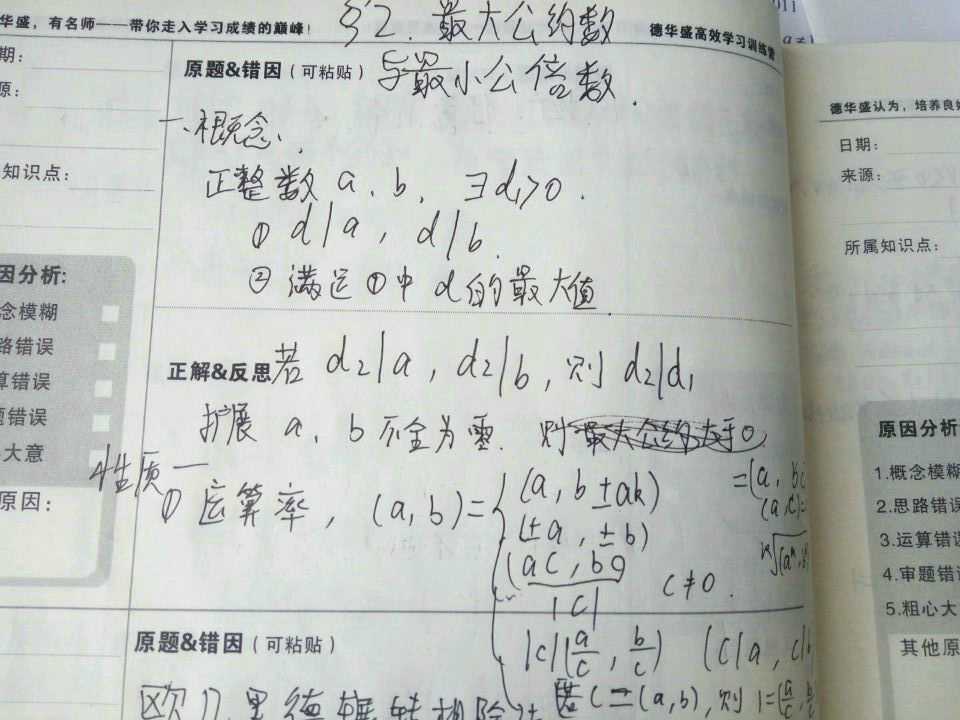 华盛，有名师——带你走入学习成绩的巅峰！
§2.最大公约数
德华盛高效学习训练营
2011
期：
源：
知识点：
因分析：
念模糊
路错误
算错误
题错误
大意
原因：
原题&错因（可粘贴）
与最小公倍数.
一、概念、
正整数 a、b， ∃d₁>0.
① d|a， d|b.
② 满足①中 d的最大值
正解&反思
若 d₂|a，d₂|b，则 d₂|d₁
扩展 a、b 不全为零.
性质一
① 运算率，(a,b)=
(a, b±ak)
(±a, ±b)
(ac, bc)
|c|
c≠0.
|c|(a/c, b/c) (c|a, c|b
=(a, bc
(a,c)=
原题&错因（可粘贴）
欧几里德辗转相除法
若c=(a,b)，则1=(a/c, b/c
德华盛认为，培养良好
日期：
来源：
所属知识点：
原因分析
1.概念模糊
2.思路错误
3.运算错误
4.审题错误
5.粗心大
其他原